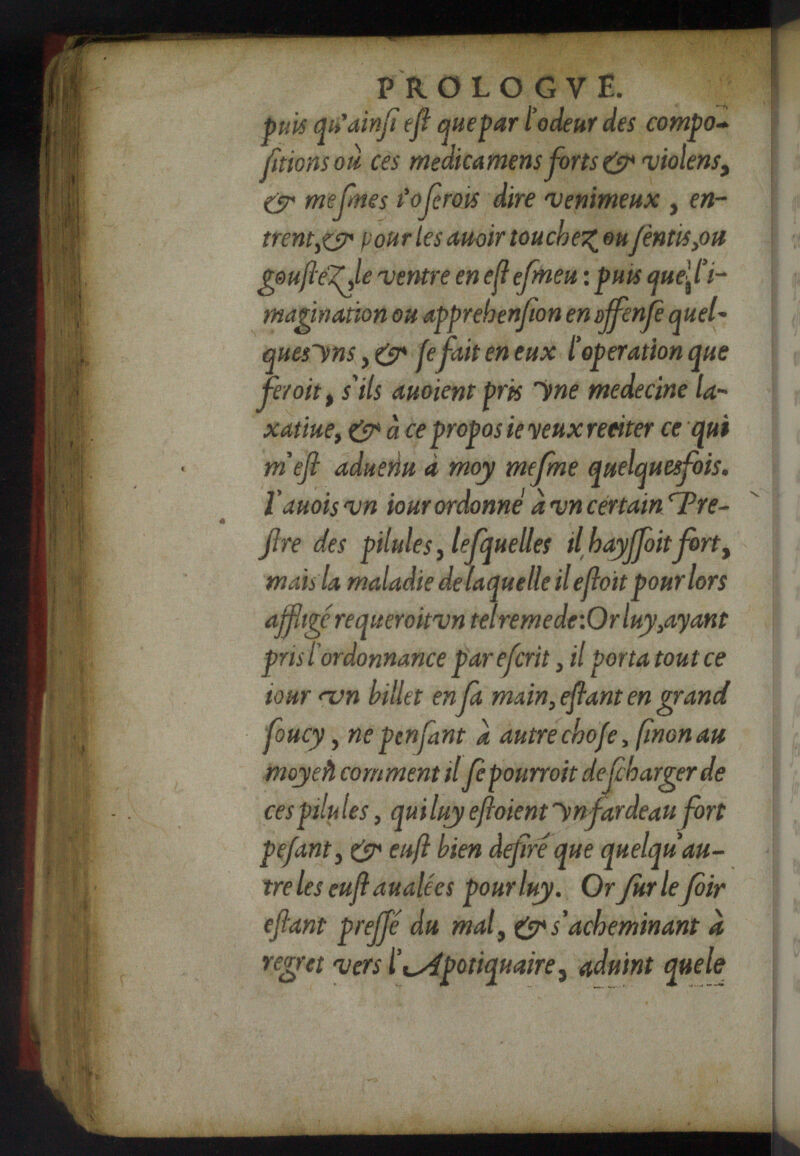 PROLOGVE.
puis qu'ainſi eſt que par l'odeur des compo-
ſitions où ces medicamens forts & violens,
& meſmes i'oſerois dire venimeux , en-
trent, & pour les auoir touchez ou ſentis, ou
gouſtéz, le ventre en eſt eſmeu : puis que l'i-
magination ou apprehenſion en offenſe quel-
ques vns, & ſe fait en eux l'operation que
feroit, s'ils auoient pris vne medecine la-
xatiue, & à ce propos ie veux reciter ce qui
m'eſt aduenu à moy meſme quelquesfois.
I'auois vn iour ordonné à vn certain Pre-
ſtre des pilules, leſquelles il hayſſoit fort,
mais la maladie de laquelle il eſtoit pour lors
affligé requeroit vn tel remede: Or luy, ayant
pris l'ordonnance par eſcrit, il porta tout ce
iour vn billet en ſa main, eſtant en grand
ſoucy, ne penſant à autre choſe, ſinon au
moyeñ comment il ſe pourroit deſcharger de
ces pilules, qui luy eſtoient vn fardeau fort
peſant, & euſt bien deſiré que quelqu'au-
tre les euſt aualées pour luy. Or ſur le ſoir
eſtant preſſé du mal, & s'acheminant à
regret vers l'Apotiquaire, aduint que le